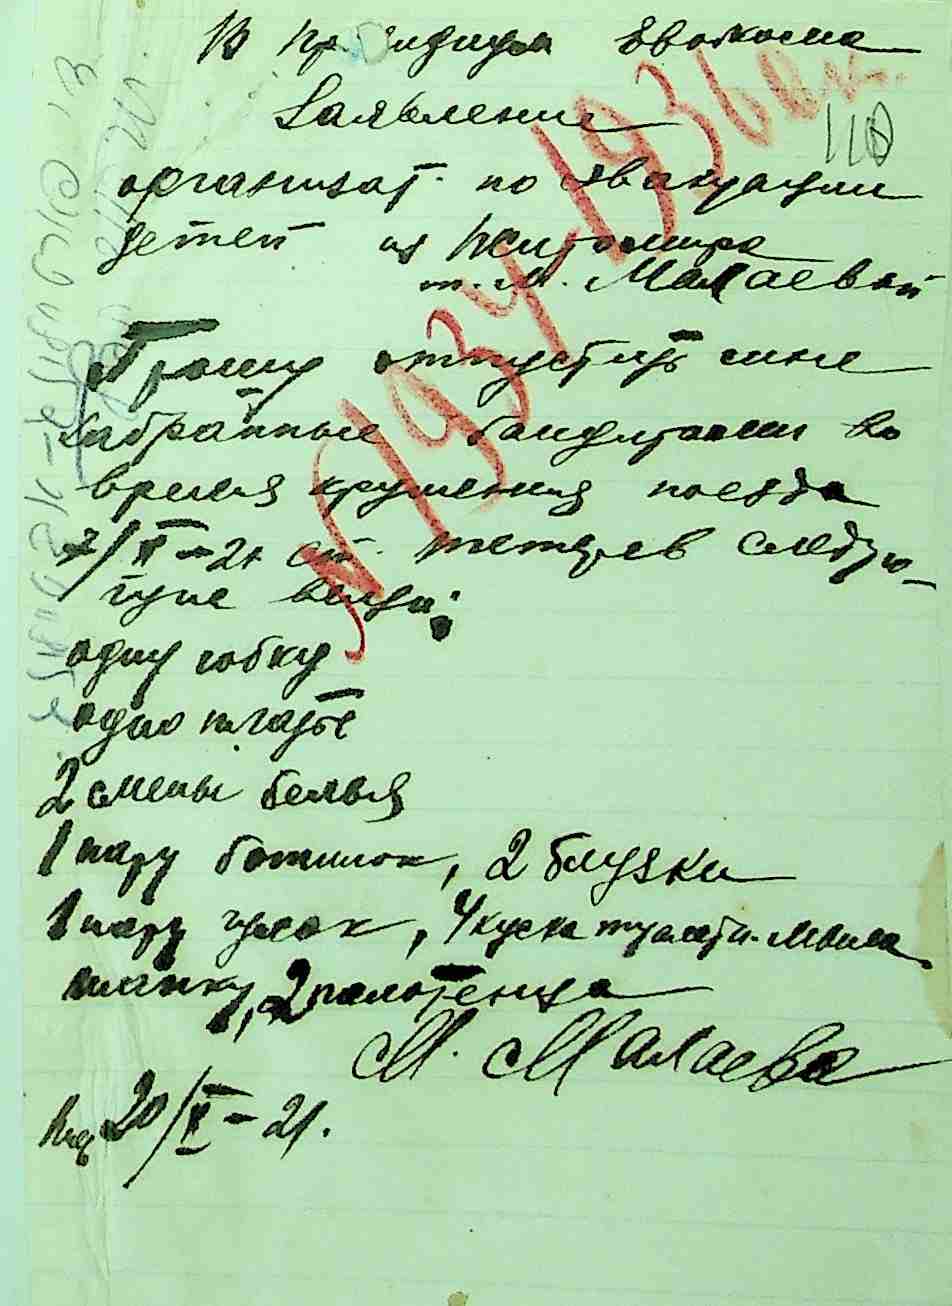 В президиум Евобкома
Заявление
организат. по эвакуации
детей из Житомира
т. М. Малаевой
Прошу отпустить мне
забранные бандитами во
время крушения поезда
7/X-21 ст. Тетерев следую-
щие вещи:
одну юбку
одно платье
2 смены белья
1 пару ботинок, 2 блузки
1 пару чулок, 4 куска туалетн. мыла
шапку, 2 полотенца
М. Малаева
20/X-21.
N 1934-1936
110